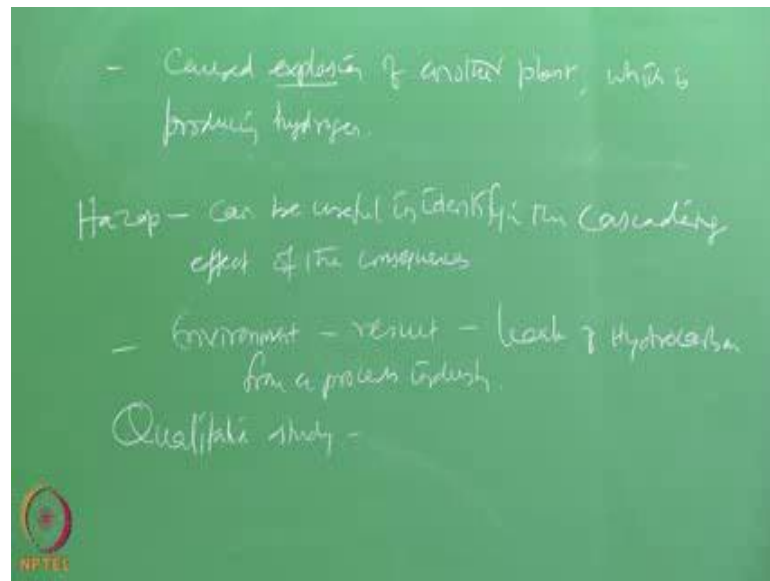 - Caused explosion of another plant, which is
producing hydrogen.
Hazop - can be useful in identifying the cascading
effect of the consequences
- Environment - result - leak of Hydrocarbon
from a process industry.
Qualitative study -
NPTEL